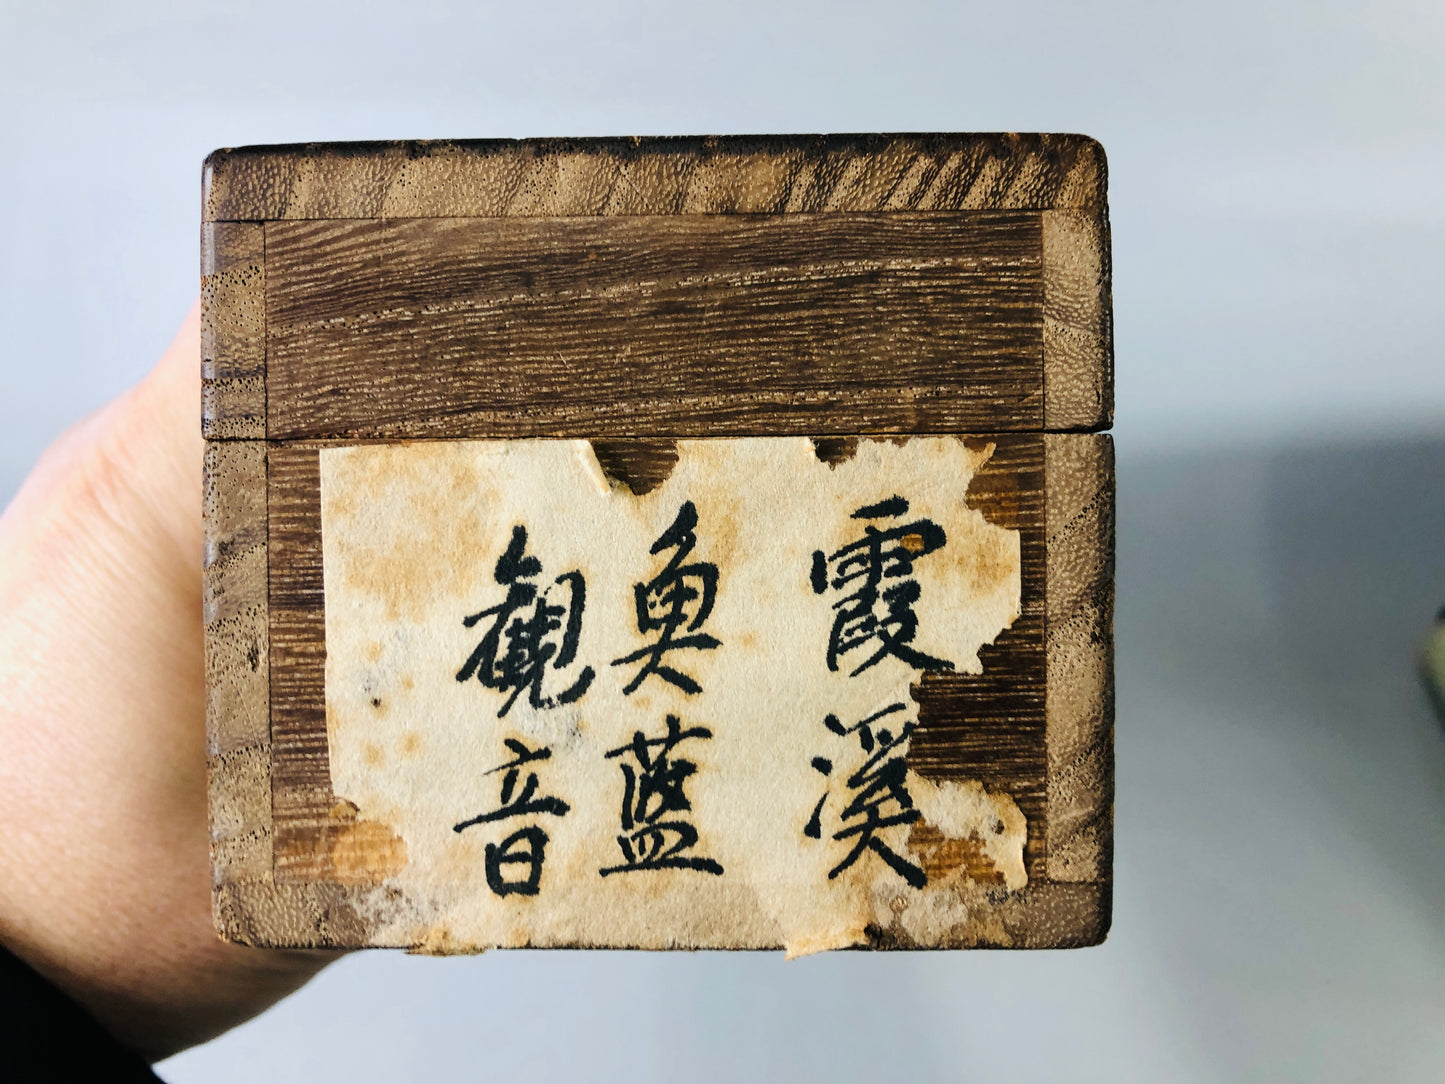 霞溪
魚藍
観音